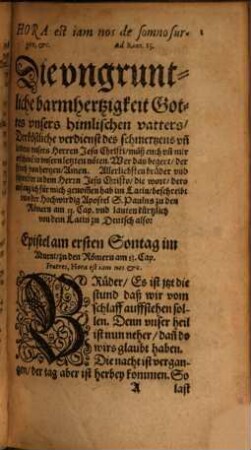 HORA est iam nos de somno sur-
gere, &c. Ad Rom. 13.
Die vngrunt-
liche barmhertzigkeit Got-
tes vnsers himlischen vatters/
Der köstliche verdienst des schmertzens vñ
lidens vnsers Herren Jesu Christi/ muß euch vñ mir
in vnsern letzten nöten. Wer das begert/ der
sprech Amen. Allerliebsten brüder vnd
in dem Herrn Jesu Christo/ die wort/ dero
ich für mich genommen hab im Latin/ beschreibt
vns der Hochwirdig Apostel S. Paulus zu den
Römern am 13. Cap. vnd lauten kürtzlich
von dem Latin zu Deutsch also:
Epistel am ersten Sontag im
Aduent/ zu den Römern am 13. Cap.
Fratres, Hora est iam nos &c.
BRüder/ Es ist jtzt die
stund daß wir vom
schlaff auffstehen sol-
len. Denn vnser heil
ist nun neher/ dañ do
wirs glaubt haben.
Die nacht ist vergan-
gen/ der tag aber ist herbey kommen. So
A last